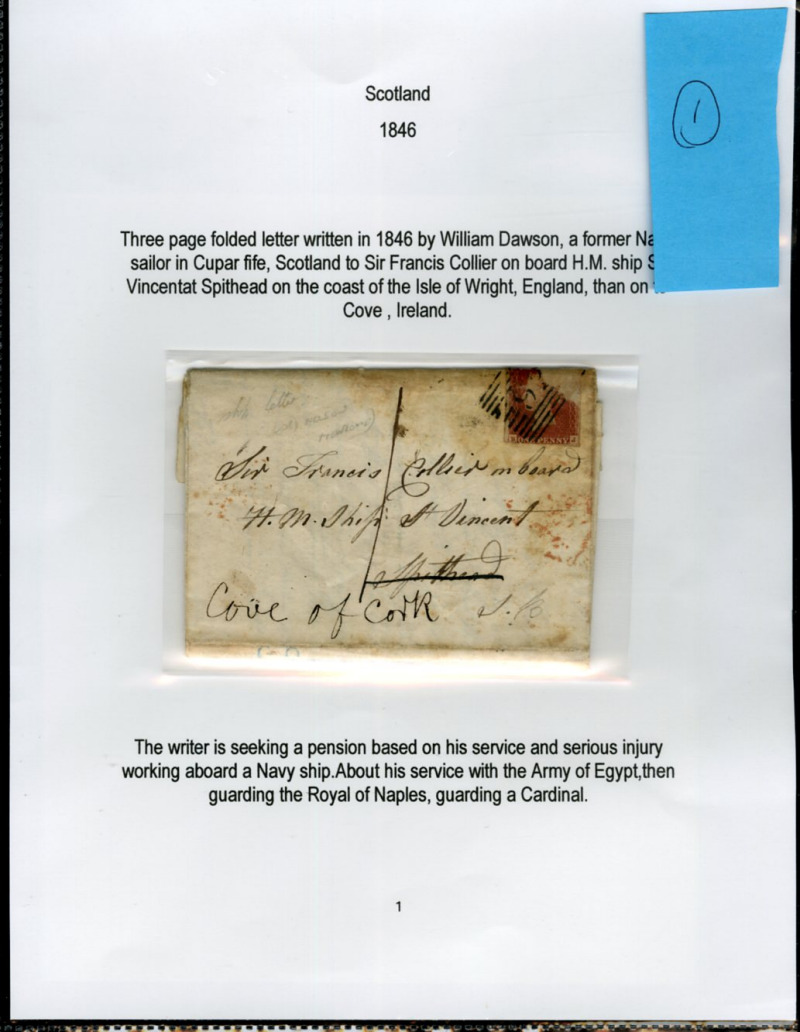 Scotland
1846
1
Three page folded letter written in 1846 by William Dawson, a former Na
sailor in Cupar fife, Scotland to Sir Francis Collier on board H.M. ship S
Vincentat Spithead on the coast of the Isle of Wright, England, than on
Cove , Ireland.
ship letter
ONE PENNY
Sir Francis Collier on board
H. M. Ship St Vincent
Spithead
Cove of Cork
The writer is seeking a pension based on his service and serious injury
working aboard a Navy ship.About his service with the Army of Egypt,then
guarding the Royal of Naples, guarding a Cardinal.
1